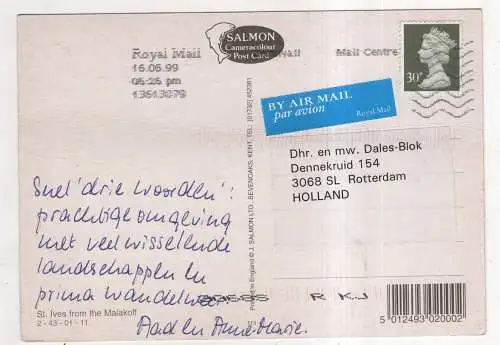 SALMON
Cameracolour
Post Card
Royal Mail
Mail Centre
16.06.99
06:26 pm
13613079
30P
BY AIR MAIL
par avion
Royal Mail
Dhr. en mw. Dales-Blok
Dennekruid 154
3068 SL Rotterdam
HOLLAND
Snel 'drie woorden':
prachtige omgeving
met veel wisselende
landschappen en
prima wandelweer
Aad en Anne-Marie.
Printed in England © J. SALMON LTD., SEVENOAKS, KENT. TEL: (01732) 452381
R K J
St. Ives from the Malakoff
2 - 43 - 01 - 11
5 012493 020002